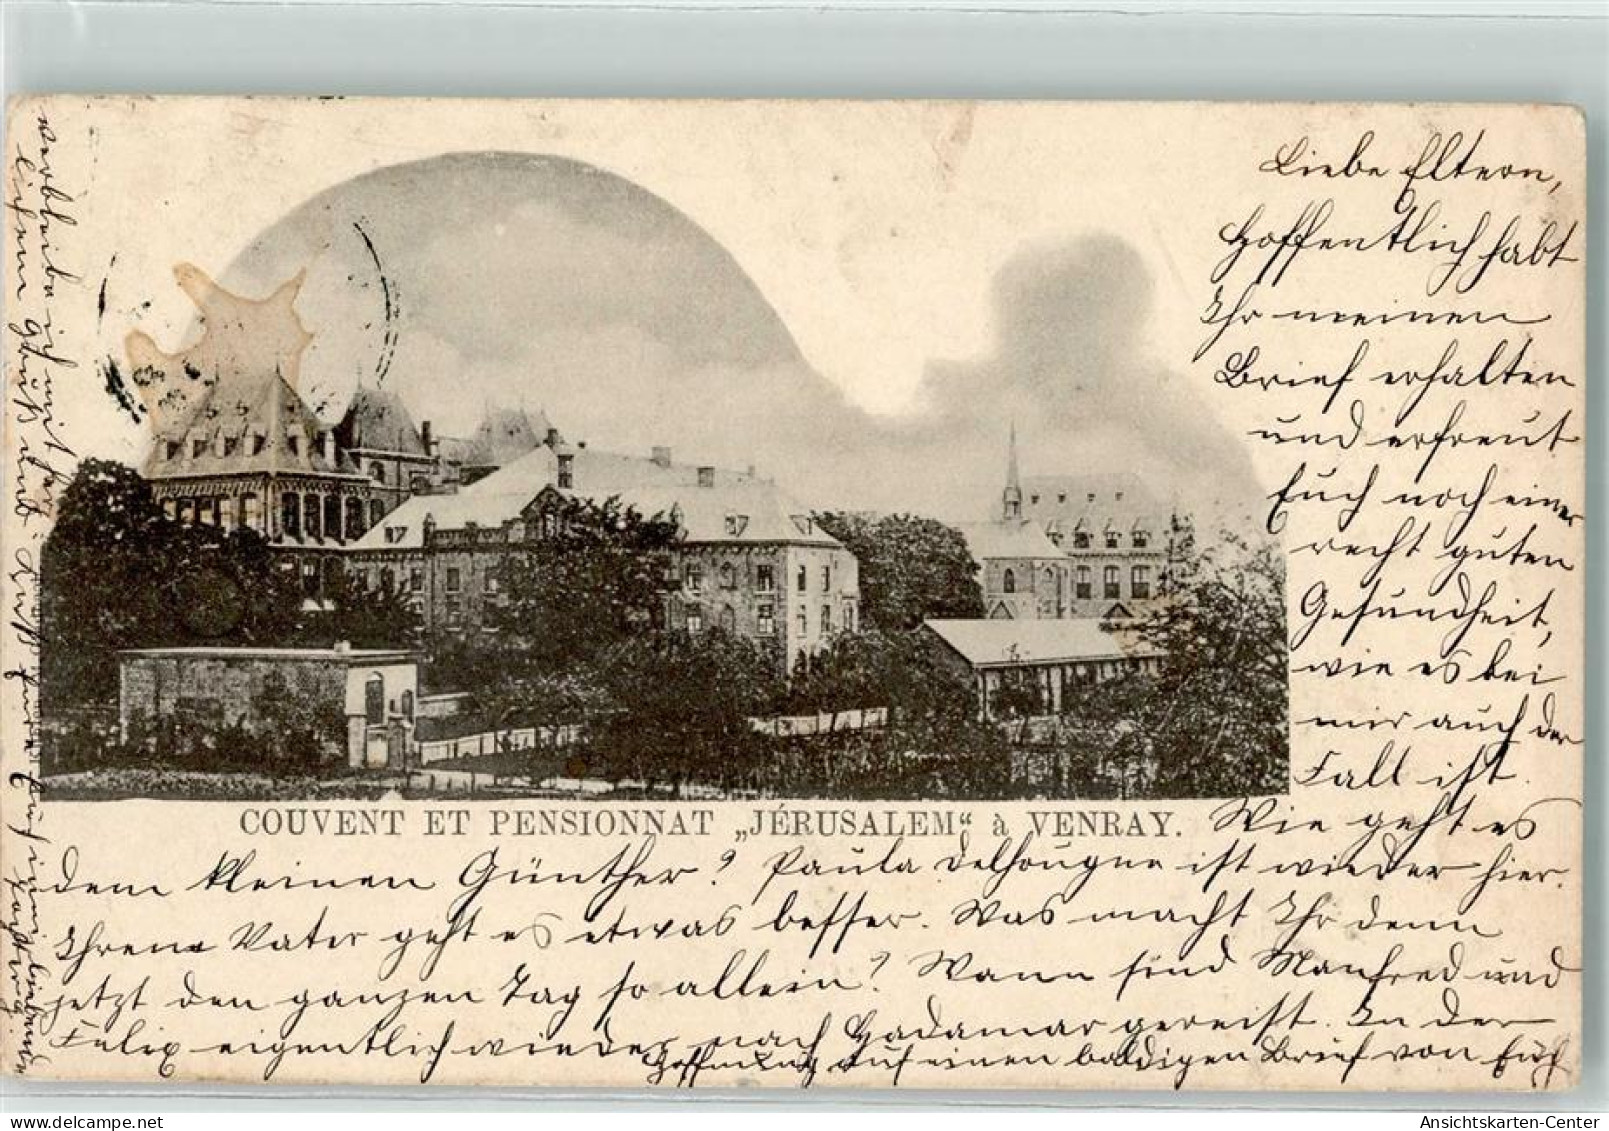 Liebe Eltern,
Hoffentlich habt
Ihr meinen
Brief erhalten
und erfreut
Euch noch einer
recht guten
Gesundheit,
wie es bei
mir auch der
Fall ist.
COUVENT ET PENSIONNAT „JÉRUSALEM“ à VENRAY.
Wie geht es
dem kleinen Günther? Paula Delhougne ist wieder hier.
Ihrem Vater geht es etwas besser. Was macht Ihr denn
jetzt den ganzen Tag so allein? Wann sind Manfred und
Felix eigentlich wieder nach Hadamar gereist. In der
Hoffnung auf einen baldigen Brief von Euch
verbleibe ich mit herz-
lichem Gruß und Kuß Eure Euch innig liebende
Tochter
Ansichtskarten-Center